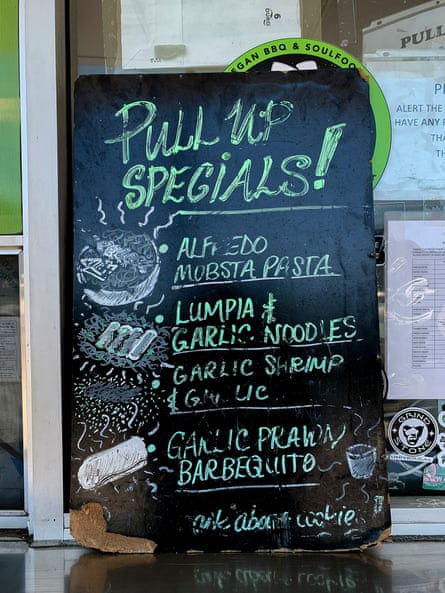 PULL UP
SPECIALS!
ALFREDO
MOBSTA PASTA
LUMPIA &
GARLIC NOODLES
GARLIC SHRIMP
& GARLIC
GARLIC PRAWN
BARBEQUITO
ask about cookies
EGAN BBQ & SOULFOO
PULL
PL
ALERT THE
HAVE ANY
THA
TH
GRIND
STONE